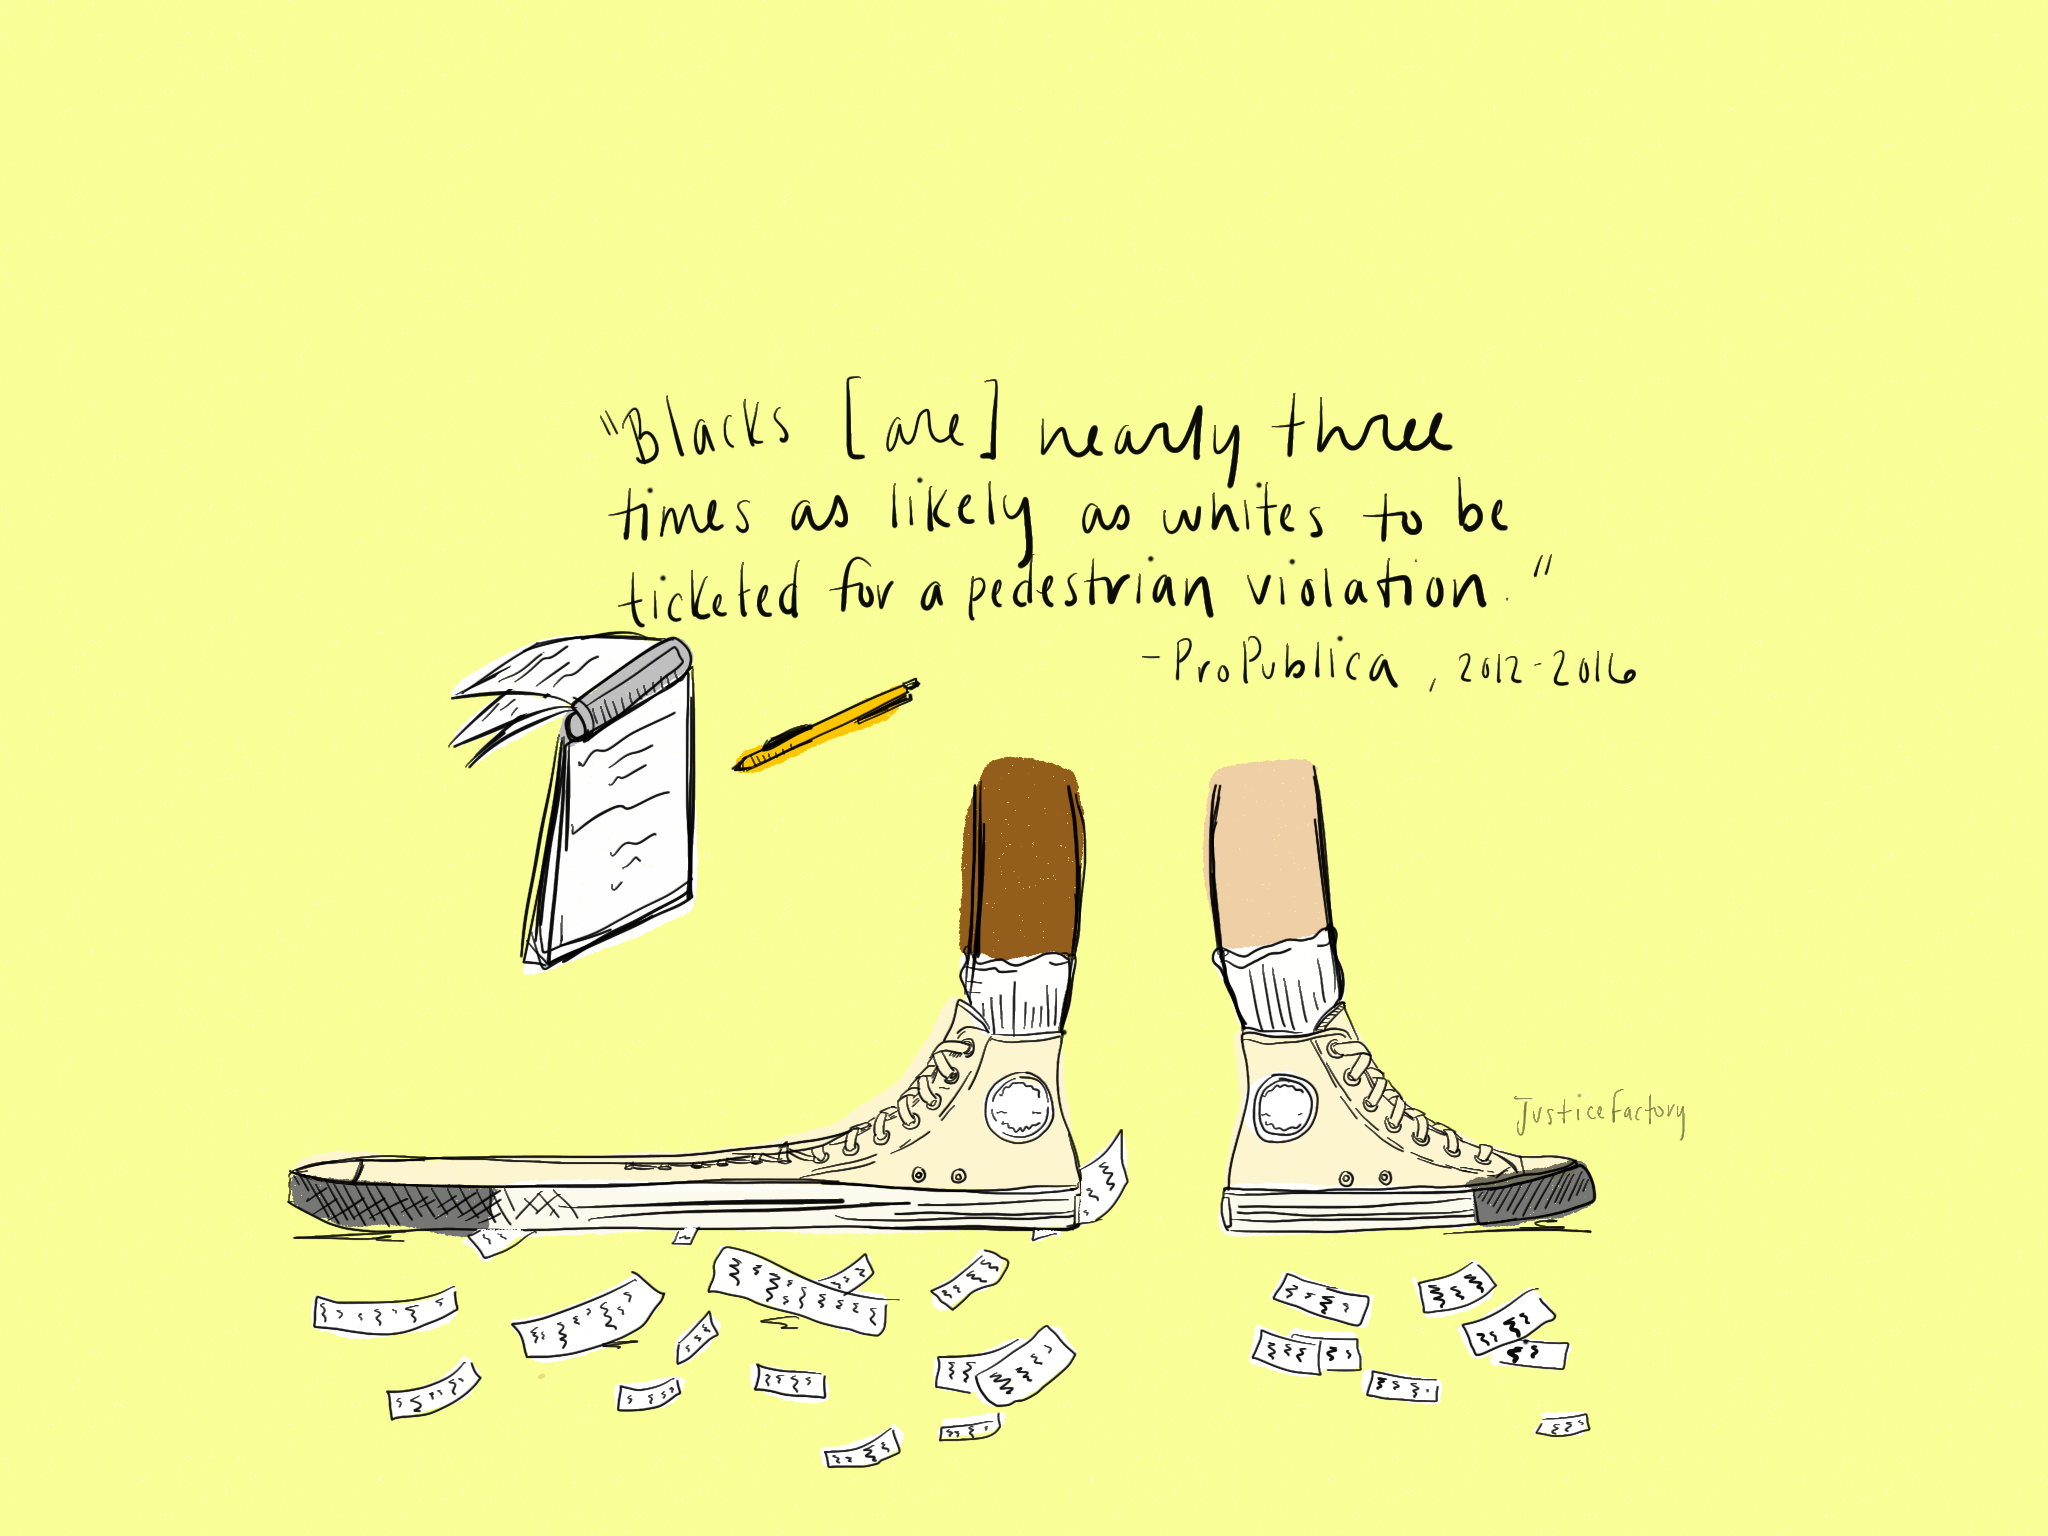 "Blacks [are] nearly three
times as likely as whites to be
ticketed for a pedestrian violation."
- ProPublica, 2012-2016
JusticeFactory